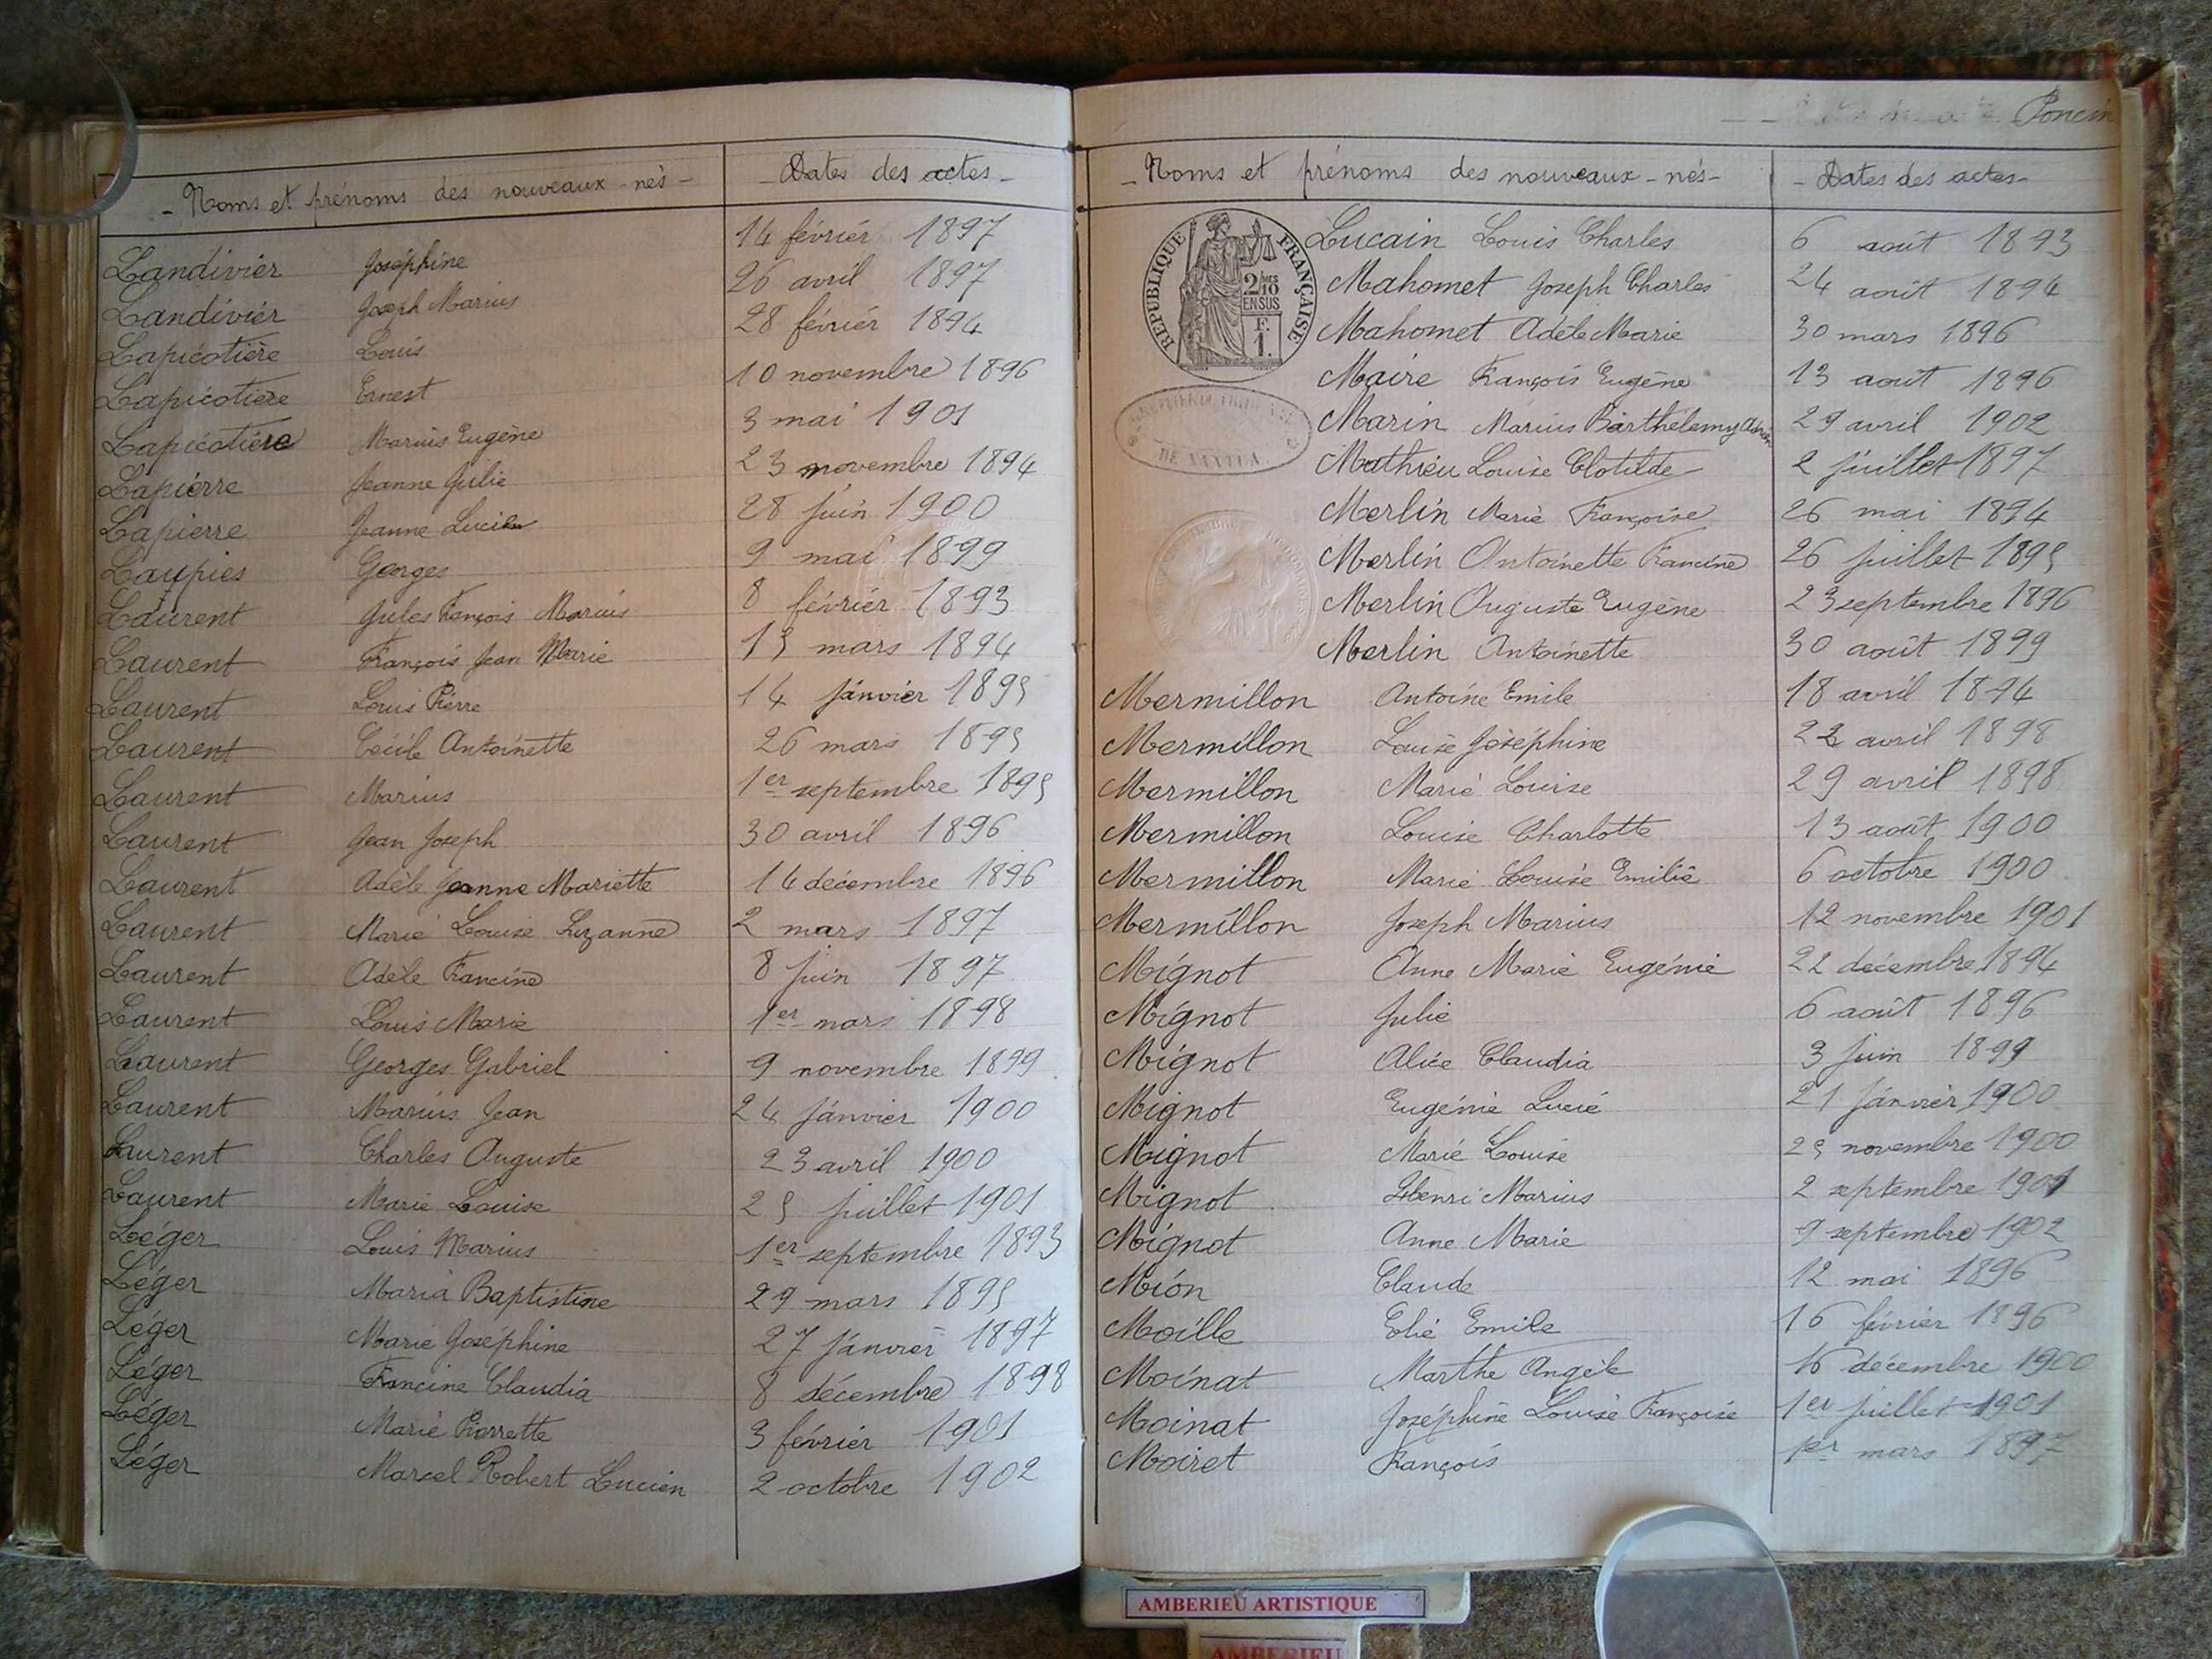 - Noms et prénoms des nouveaux-nés - - Dates des actes -
Landivier Joséphine 14 février 1897
Landivier Joseph Marius 26 avril 1897
Lapicotière Louis 28 février 1894
Lapicotière Ernest 10 novembre 1896
Lapicotière Marius Eugène 3 mai 1901
Lapierre Jeanne Julie 23 novembre 1894
Lapierre Jeanne 28 juin 1900
Laupies Georges 9 mai 1899
Laurent Jules François Marius 8 février 1893
Laurent François Jean Marie 15 mars 1894
Laurent Louis Pierre 14 janvier 1895
Laurent Cécile Antoinette 26 mars 1895
Laurent Marius 1er septembre 1895
Laurent Jean Joseph 30 avril 1896
Laurent Adèle Jeanne Mariette 14 décembre 1896
Laurent Marie Louise Suzanne 2 mars 1897
Laurent Adèle Francine 8 juin 1897
Laurent Louis Marie 1er mars 1898
Laurent Georges Gabriel 9 novembre 1899
Laurent Marius Jean 24 janvier 1900
Laurent Charles Auguste 23 avril 1900
Laurent Marie Louise 25 juillet 1901
Léger Louis Marius 1er septembre 1893
Léger Maria Baptistine 29 mars 1895
Léger Marie Joséphine 27 janvier 1897
Léger Francine Claudia 8 décembre 1898
Léger Marie Pierrette 3 février 1901
Léger Marcel Robert Lucien 2 octobre 1902
Poncin
- Noms et prénoms des nouveaux-nés - - Dates des actes -
RÉPUBLIQUE FRANÇAISE
2/10 MES
EN SUS
F.
1.
Lucain Louis Charles 6 août 1893
Mahomet Joseph Charles 24 août 1894
Mahomet Adèle Marie 30 mars 1896
Maire François Eugène 13 août 1896
Marin Marius Barthélemy 29 avril 1902
Mathieu Louise Clotilde 2 juillet 1897
Merlin Marie Françoise 26 mai 1894
Merlin Antoinette Francine 26 juillet 1895
Merlin Auguste Eugène 23 septembre 1896
Merlin Antoinette 30 août 1899
Mermillon Antoine Emile 18 avril 1894
Mermillon Louise Joséphine 22 avril 1898
Mermillon Marie Louise 29 avril 1898
Mermillon Louise Charlotte 13 août 1900
Mermillon Marie Louise Emilie 6 octobre 1900
Mermillon Joseph Marius 12 novembre 1901
Mignot Anne Marie Eugénie 22 décembre 1894
Mignot Julie 6 août 1896
Mignot Alice Claudia 3 juin 1899
Mignot Eugénie Lucie 21 janvier 1900
Mignot Marie Louise 25 novembre 1900
Mignot Henri Marius 2 septembre 1901
Mignot Anne Marie 9 septembre 1902
Mion Claude 12 mai 1896
Moille Elie Emile 16 février 1896
Moinat Marthe Angèle 16 décembre 1900
Moinat Joséphine Louise Françoise 1er juillet 1901
Moiret François 1er mars 1897
AMBERIEU ARTISTIQUE
AMBERIEU